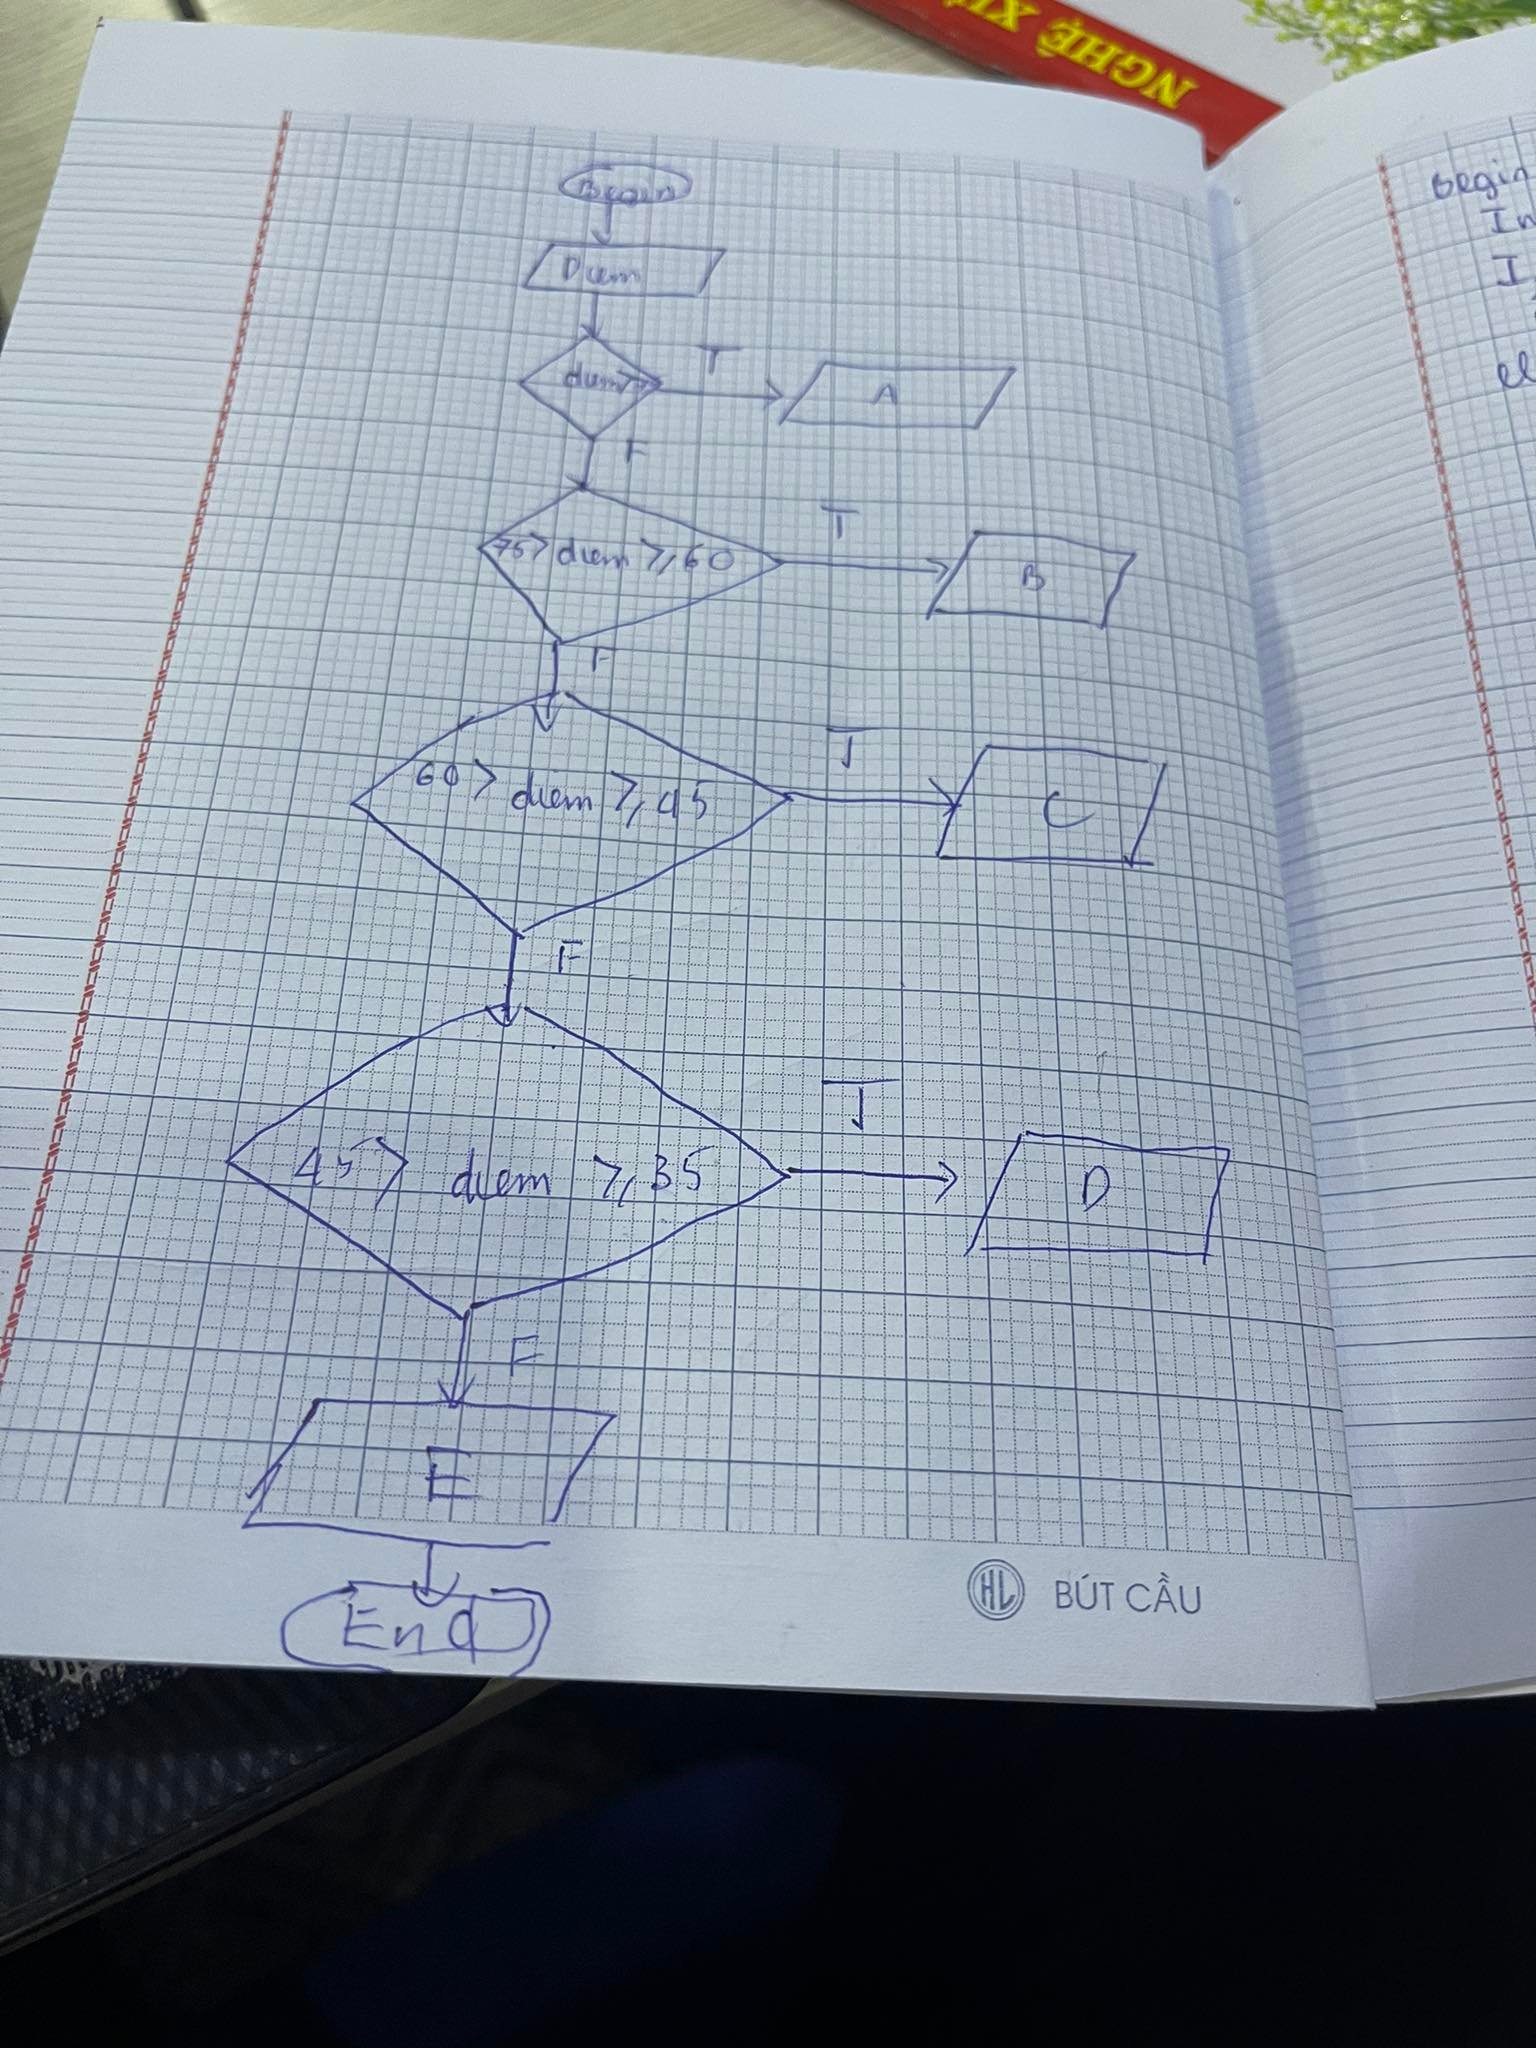 NGHỆ XU
Begin
Diem
diem >
T
A
F
75 > diem ≥ 60
T
B
F
60 > diem ≥ 45
T
C
F
45 > diem ≥ 35
T
D
F
E
End
HL BÚT CẦU
Begin
In
I
el